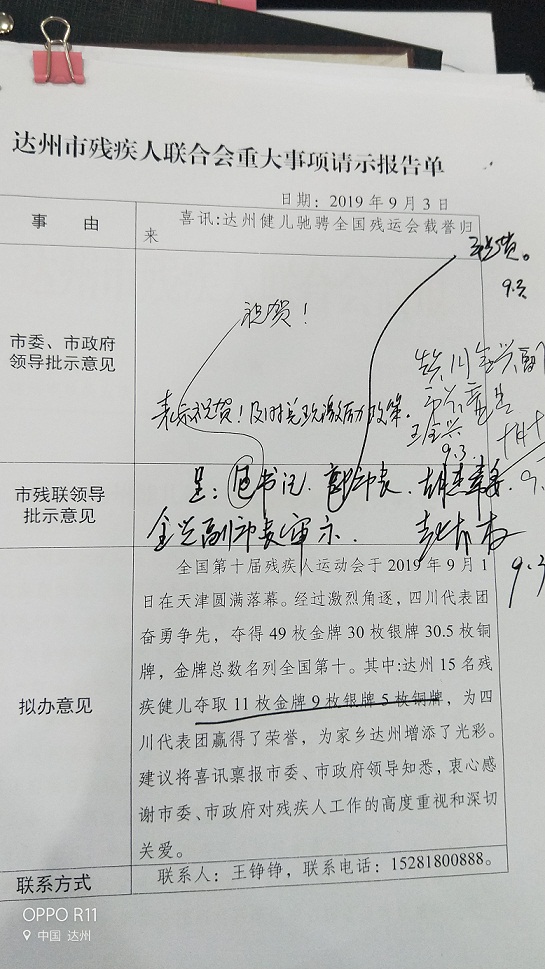 达州市残疾人联合会重大事项请示报告单
日期：2019年9月3日
事 由
喜讯:达州健儿驰骋全国残运会载誉归
来
9.3
市委、市政府
领导批示意见
祝贺！
表示祝贺！及时兑现激励政策.
9.3.
市残联领导
批示意见
呈：包书记.郭市长.
金兴副市长审示.
9.3
拟办意见
全国第十届残疾人运动会于2019年9月1
日在天津圆满落幕。经过激烈角逐，四川代表团
奋勇争先，夺得49枚金牌30枚银牌30.5枚铜
牌，金牌总数名列全国第十。其中:达州15名残
疾健儿夺取11枚金牌9枚银牌5枚铜牌，为四
川代表团赢得了荣誉，为家乡达州增添了光彩。
建议将喜讯禀报市委、市政府领导知悉，衷心感
谢市委、市政府对残疾人工作的高度重视和深切
关爱。
联系方式
联系人：王铮铮，联系电话：15281800888。
OPPO R11
中国 达州